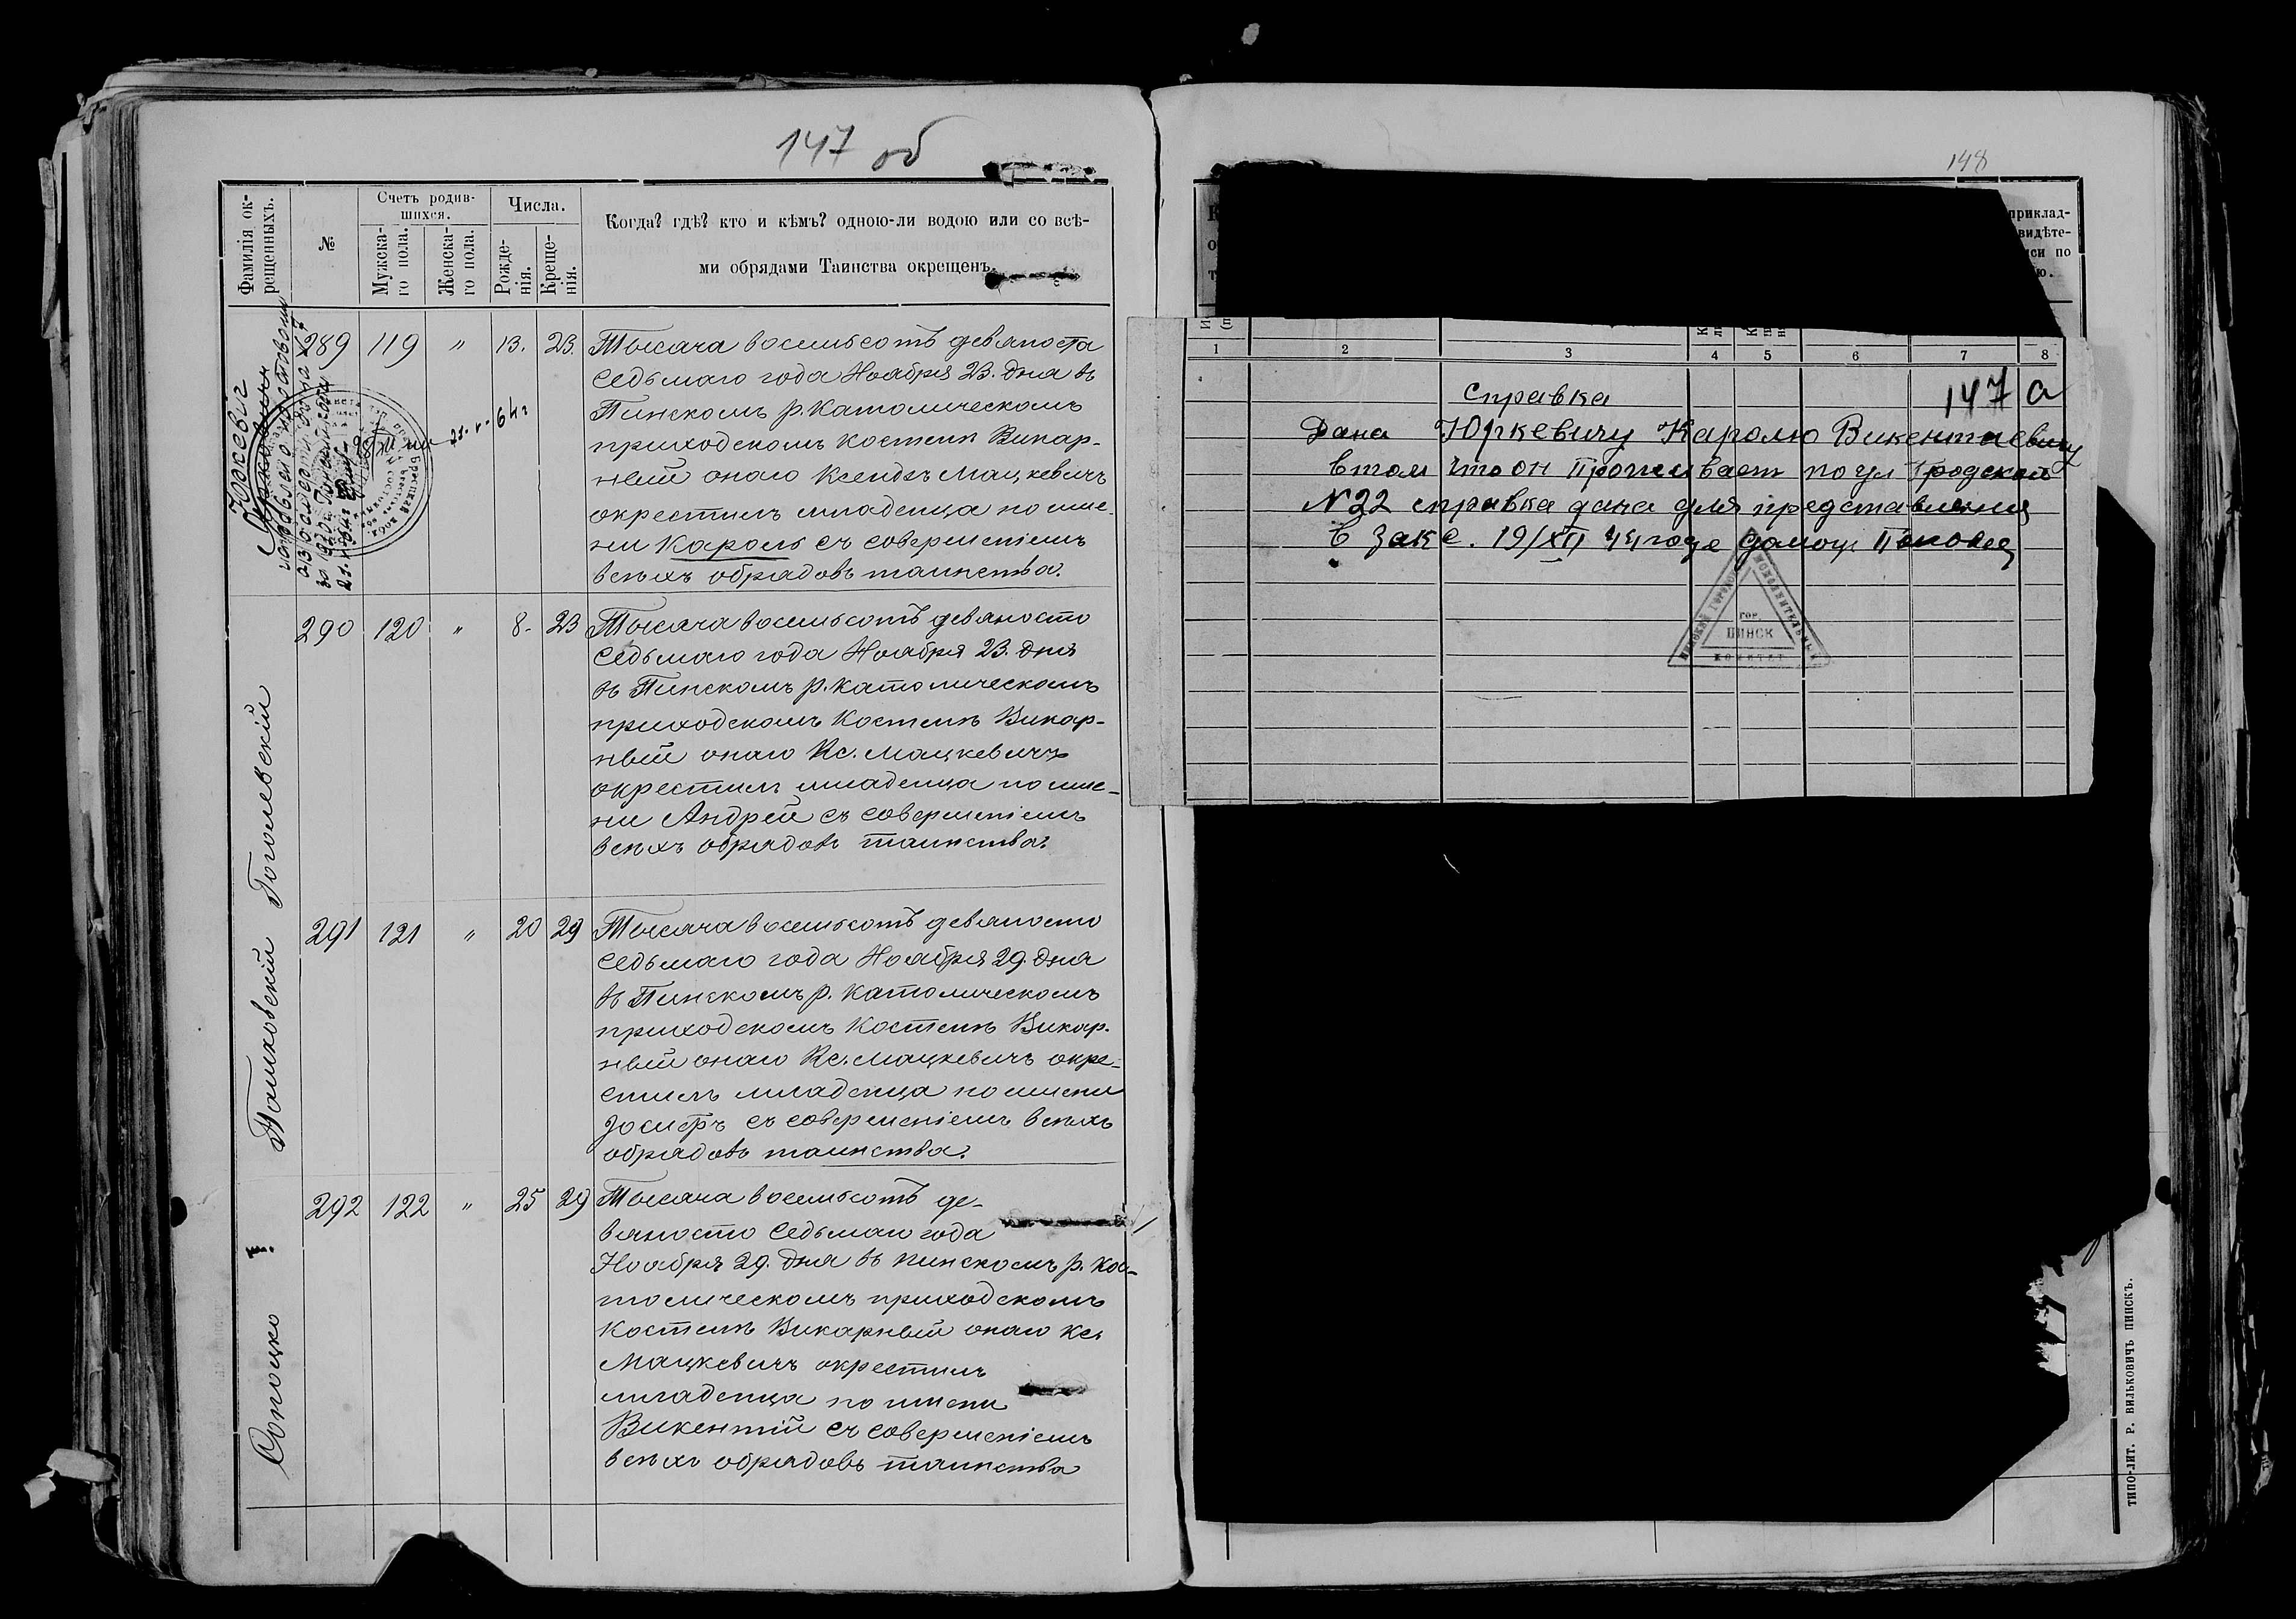 147 об
Фамилія ок-
рещенныхъ.
№
Счетъ родив-
шихся.
Мужска-
го пола.
Женска-
го пола.
Числа.
Рожде-
нія.
Креще-
нія.
Когда? гдѣ? кто и кѣмъ? одною-ли водою или со всѣ-
ми обрядами Таинства окрещенъ.
Юркевіг
289 119 " 13. 23.
Тысяча восемьсотъ девяноста
седьмаго года Ноября 23. дня въ
Пинскомъ р. Католическомъ
приходскомъ костелѣ Викар-
ный онаго Ксендзъ Мацкевичъ
окрестилъ младенца по име-
ни Кароль съ совершеніемъ
всѣхъ обрядовъ таинства.
Гоголевскій
290 120 " 8. 23
Тысяча восемьсотъ девяносто
седьмаго года Ноября 23. дня
въ Пинскомъ р. Католическомъ
приходскомъ Костелѣ Викар-
ный онаго Кс. Мацкевичъ
окрестилъ младенца по име-
ни Андрей съ совершеніемъ
всѣхъ обрядовъ таинства.
291 121 " 20 29
Тысяча восемьсотъ девяносто
седьмаго года Ноября 29. дня
въ Пинскомъ р. Католическомъ
приходскомъ Костелѣ Викар-
ный онаго Кс. Мацкевичъ окре-
стилъ младенца по имени
Іосифъ съ совершеніемъ всѣхъ
обрядовъ таинства.
292 122 " 25 29
Тысяча восемьсотъ де-
вяносто седьмаго года
Ноября 29. дня въ Пинскомъ р. Ка-
толическомъ приходскомъ
Костелѣ Викарный онаго Кс.
Мацкевичъ окрестилъ
младенца по имени
Викентій съ совершеніемъ
всѣхъ обрядовъ таинства
148
приклад-
видѣте-
си по
ю.
1 2 3 4 5 6 7 8
Справка 147 а
Дана Юркевичу Каролю Викентиевичу
в том что он проживает по ул Бродской
№ 22 справка дана для представления
в Закс. 19/XII 44 года
ГОР.
ПИНСК
КОМИТЕТ
ТИПО-ЛИТ. Р. ВИЛЬКОВИЧЪ ПИНСКЪ.